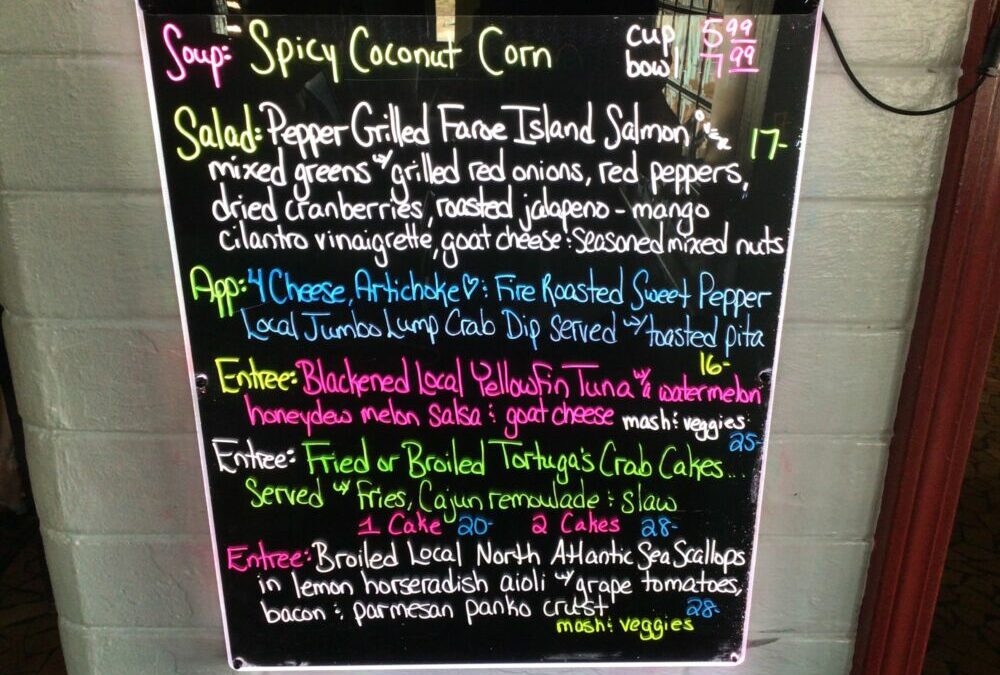 Soup: Spicy Coconut Corn cup 5.99
bowl 7.99
Salad: Pepper Grilled Faroe Island Salmon over 17-
mixed greens w/ grilled red onions, red peppers,
dried cranberries, roasted jalapeno - mango
cilantro vinaigrette, goat cheese & seasoned mixed nuts
App: 4 Cheese, Artichoke ♡ & Fire Roasted Sweet Pepper
Local Jumbo Lump Crab Dip served w/ toasted pita
16-
Entree: Blackened Local Yellowfin Tuna w/ a watermelon
honeydew melon salsa & goat cheese mash & veggies
25-
Entree: Fried or Broiled Tortuga's Crab Cakes...
Served w/ Fries, Cajun remoulade & slaw
1 Cake 20- 2 Cakes 28-
Entree: Broiled Local North Atlantic Sea Scallops
in lemon horseradish aioli w/ grape tomatoes,
bacon & parmesan panko crust 28-
mash & veggies